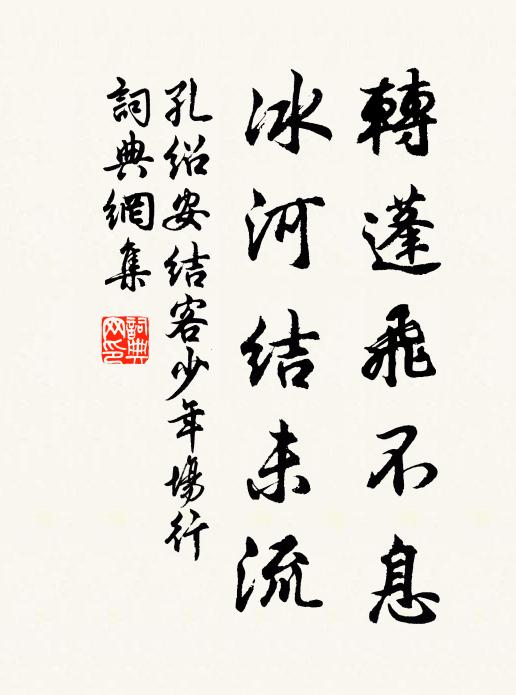 轉蓬飛不息
冰河結未流
孔绍安結客少年場行
詞典網集
詞典
网印